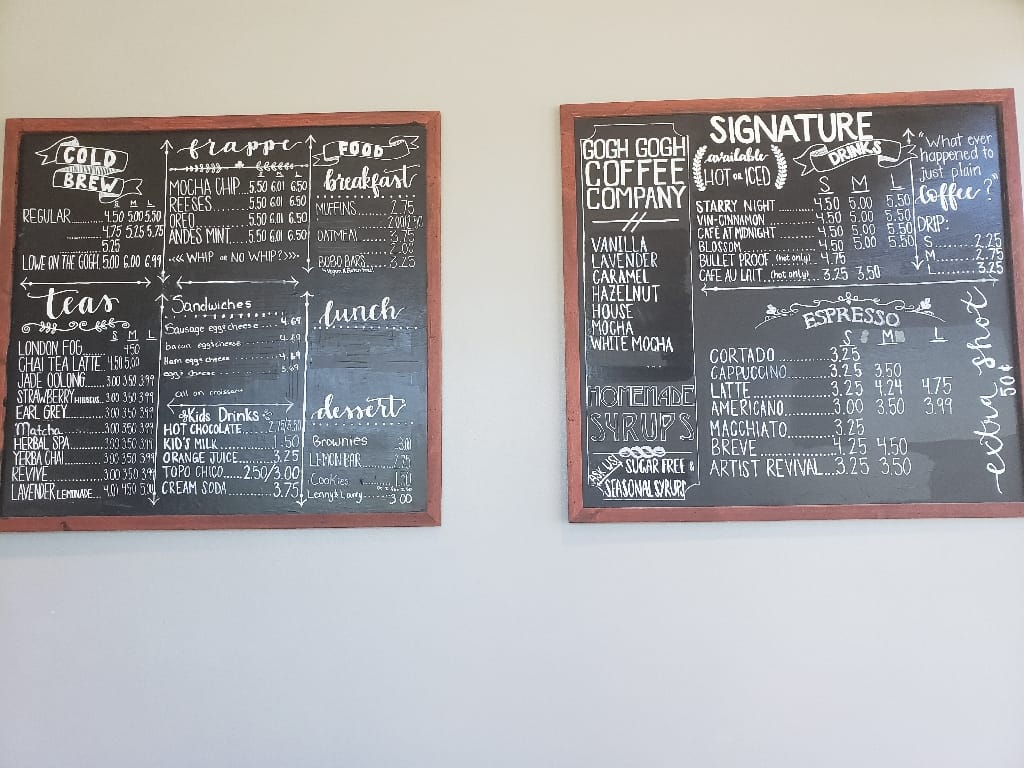 COLD
BREW
S M L
REGULAR 4.50 5.00 5.50
4.75 5.25 5.75
5.25
LOWE ON THE GOGH 5.00 6.00 6.99
teas
S M L
LONDON FOG 4.50
CHAI TEA LATTE 4.50 5.00
JADE OOLONG 3.00 3.50 3.99
STRAWBERRY HIBISCUS 3.00 3.50 3.99
EARL GREY 3.00 3.50 3.99
Matcha 3.00 3.50 3.99
HERBAL SPA 3.00 3.50 3.99
YERBA CHAI 3.00 3.50 3.99
REVIVE 3.00 3.50 3.99
LAVENDER LEMONADE 4.01 4.50 5.00
frappe
S M L
MOCHA CHIP 5.50 6.01 6.50
REESES 5.50 6.01 6.50
OREO 5.50 6.01 6.50
ANDES MINT 5.50 6.01 6.50
<<< WHIP or NO WHIP? >>>
Sandwiches
Sausage egg & cheese 4.69
bacon egg & cheese 4.69
Ham egg & cheese 4.69
egg & cheese 3.69
all on croissant
Kids Drinks
HOT CHOCOLATE 2.75/3.50
KID'S MILK 1.50
ORANGE JUICE 3.25
TOPO CHICO 2.50/3.00
CREAM SODA 3.75
FOOD
breakfast
MUFFINS 2.75
OATMEAL
BOBO BARS 3.25
lunch
dessert
Brownies
LEMON BAR
Cookies
Lenny & Larry 3.00
GOGH GOGH
COFFEE
COMPANY
VANILLA
LAVENDER
CARAMEL
HAZELNUT
HOUSE
MOCHA
WHITE MOCHA
HOMEMADE
SYRUPS
ASK US!
SUGAR FREE &
SEASONAL SYRUPS
SIGNATURE
DRINKS
available
HOT or ICED
S M L
STARRY NIGHT 4.50 5.00 5.50
VIN-CINNAMON 4.50 5.00 5.50
CAFE AT MIDNIGHT 4.50 5.00 5.50
BLOSSOM 4.50 5.00 5.50
BULLET PROOF (hot only) 4.75
CAFE AU LAIT (hot only) 3.25 3.50
"What ever
happened to
just plain
Coffee?"
DRIP:
S 2.25
M 2.75
L 3.25
ESPRESSO
S M L
CORTADO 3.25
CAPPUCCINO 3.25 3.50
LATTE 3.25 4.24 4.75
AMERICANO 3.00 3.50 3.99
MACCHIATO 3.25
BREVE 4.25 4.50
ARTIST REVIVAL 3.25 3.50
extra shot
50¢